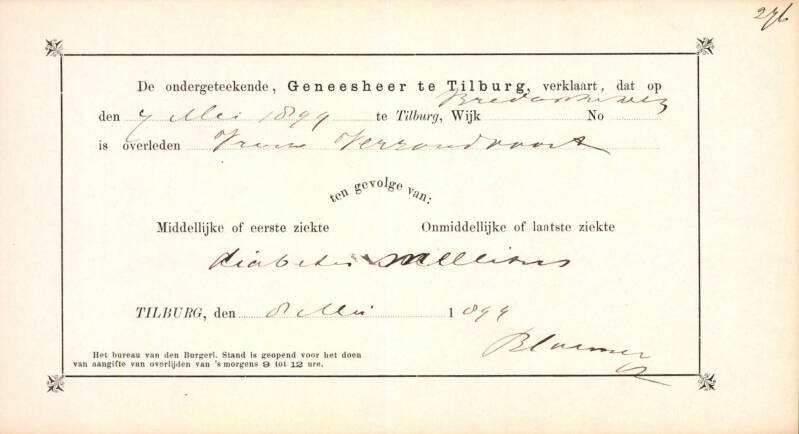 276
De ondergeteekende, Geneesheer te Tilburg, verklaart, dat op
Bredascheweg
den 7 Mei 1899 te Tilburg, Wijk No
is overleden Vrouw Verzandvoort
ten gevolge van:
Middellijke of eerste ziekte Onmiddellijke of laatste ziekte
diabetes mellitus
TILBURG, den 8 Mei 1899
Bloemen
Het bureau van den Burgerl. Stand is geopend voor het doen
van aangifte van overlijden van 's morgens 9 tot 12 ure.